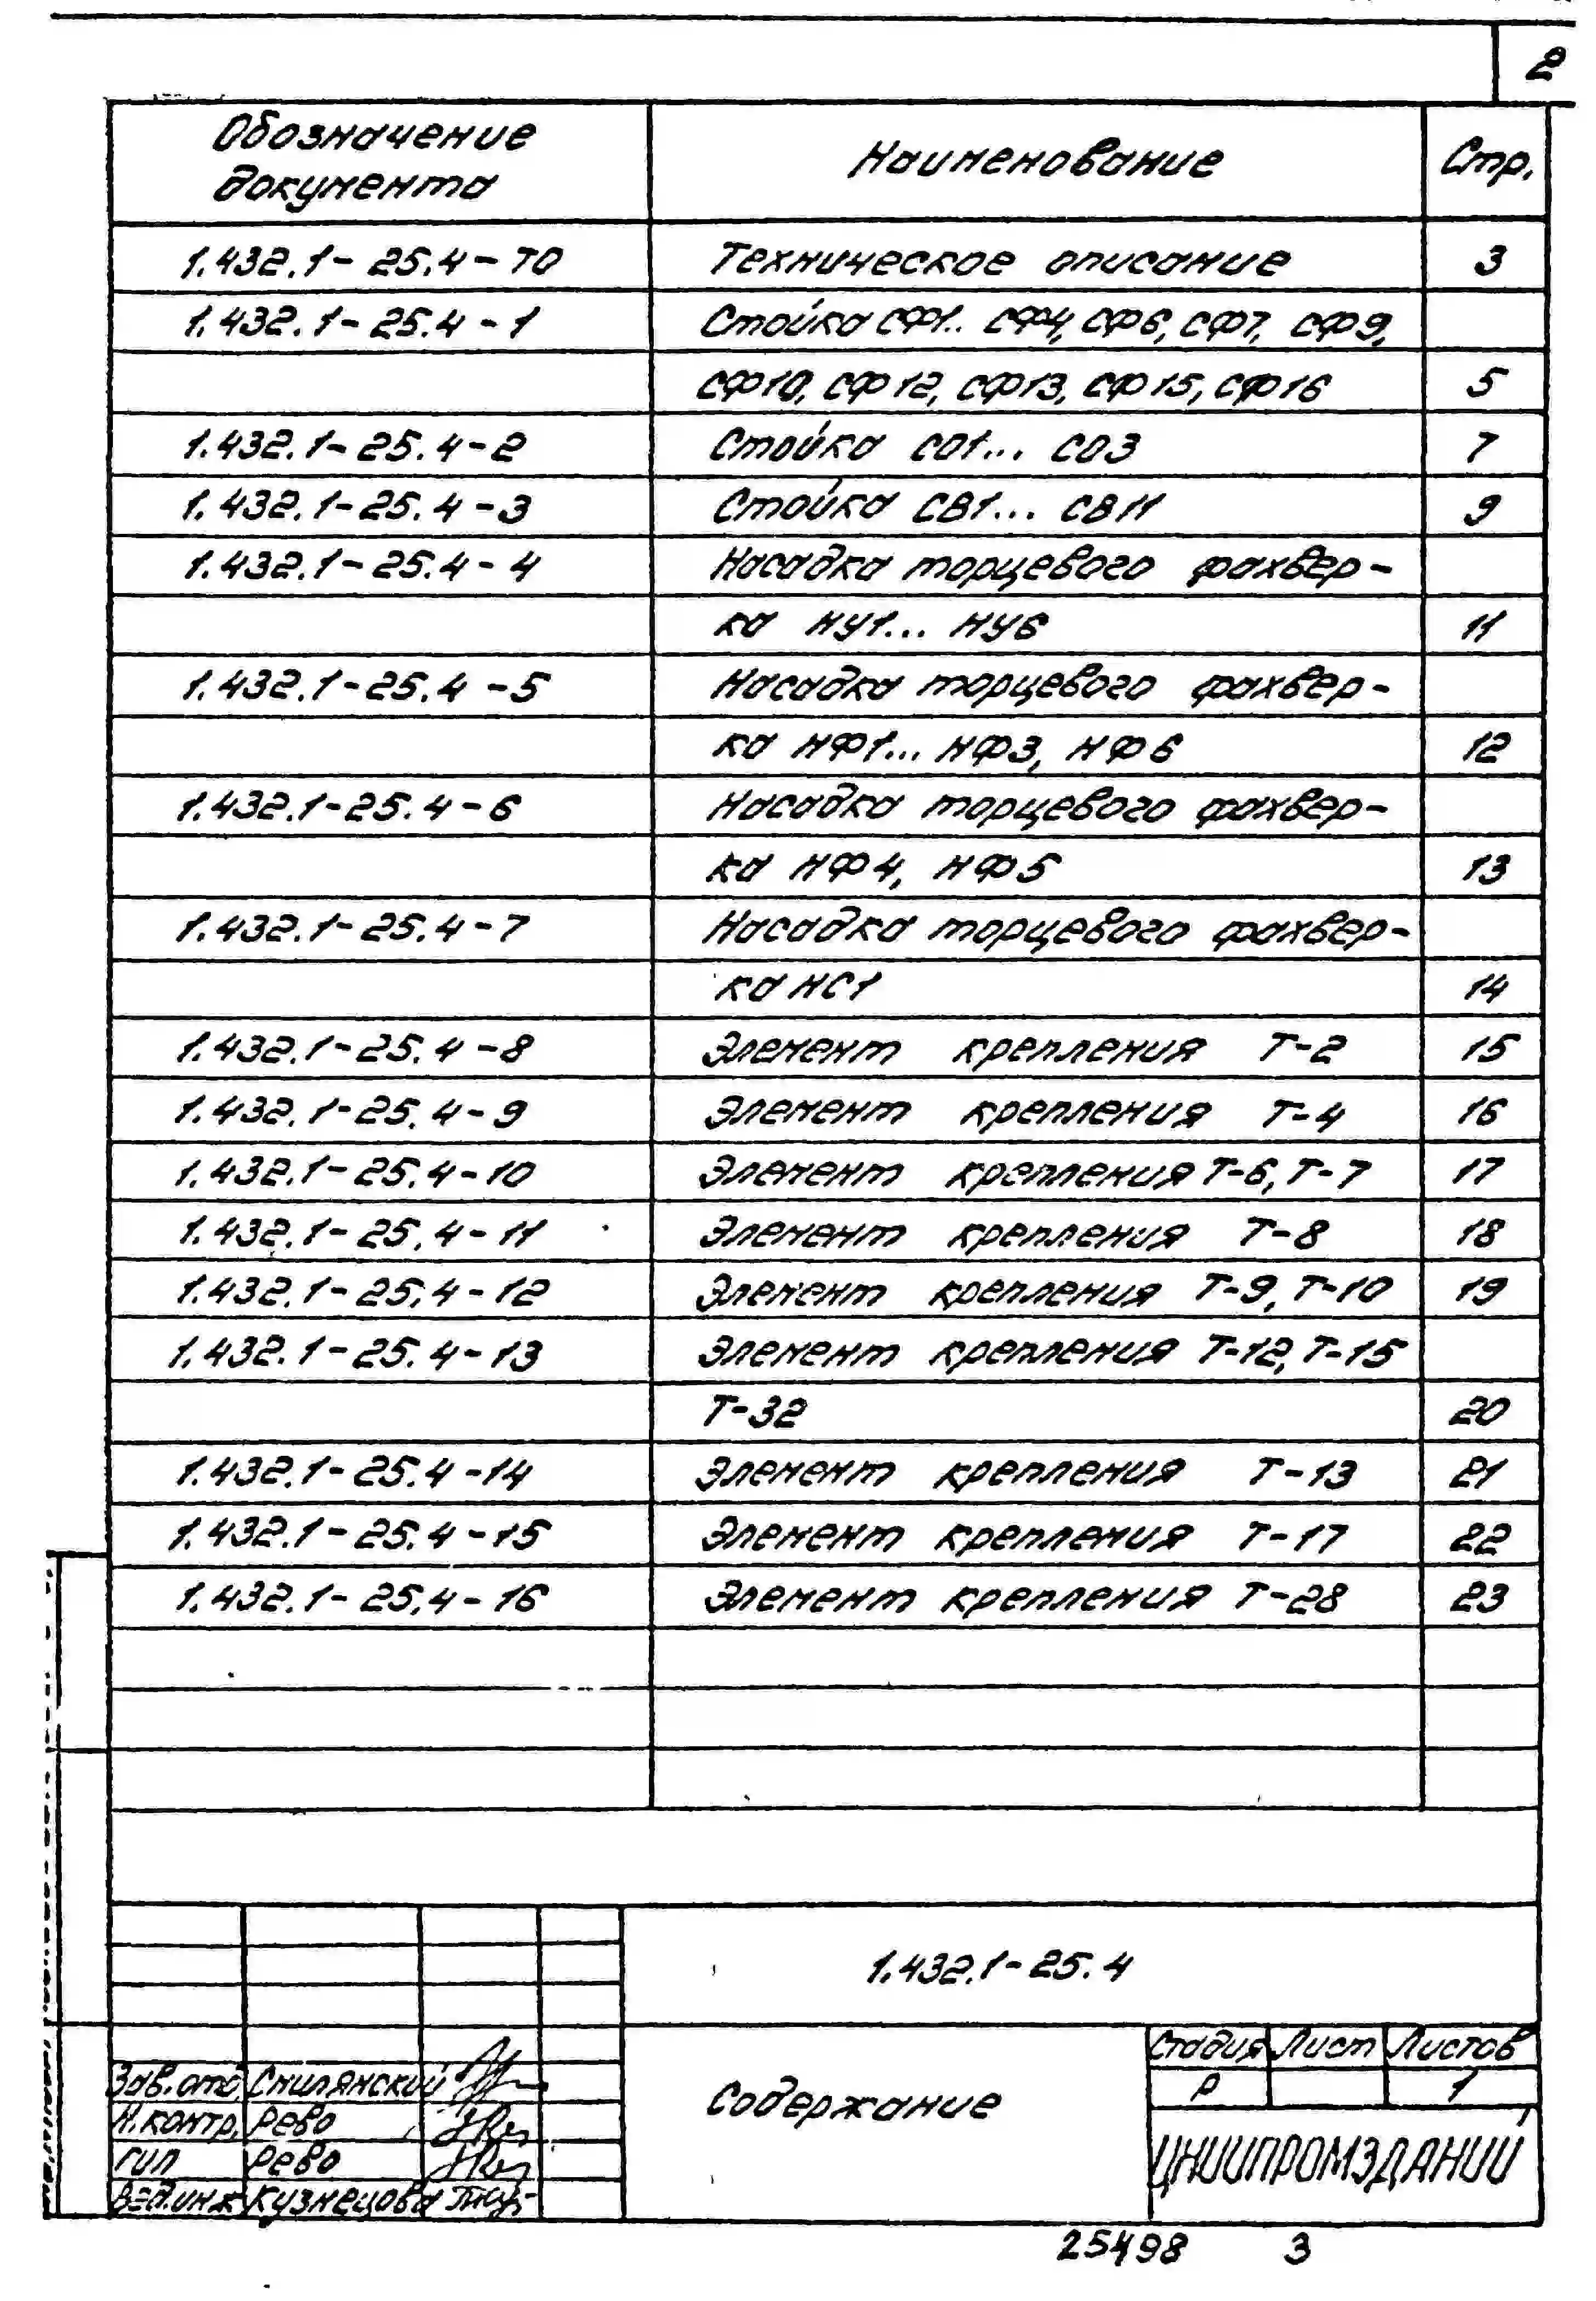 2
Обозначение документа Наименование Стр.
1.432.1-25.4-ТО Техническое описание 3
1.432.1-25.4-1 Стойка СФ1.. СФ4, СФ6, СФ7, СФ9,
СФ10, СФ12, СФ13, СФ15, СФ16 5
1.432.1-25.4-2 Стойка СО1... СО3 7
1.432.1-25.4-3 Стойка СВ1... СВ11 9
1.432.1-25.4-4 Насадка торцевого фахвер-
ка НУ1... НУ6 11
1.432.1-25.4-5 Насадка торцевого фахвер-
ка НФ1... НФ3, НФ6 12
1.432.1-25.4-6 Насадка торцевого фахвер-
ка НФ4, НФ5 13
1.432.1-25.4-7 Насадка торцевого фахвер-
ка НС1 14
1.432.1-25.4-8 Элемент крепления Т-2 15
1.432.1-25.4-9 Элемент крепления Т-4 16
1.432.1-25.4-10 Элемент крепления Т-6, Т-7 17
1.432.1-25.4-11 Элемент крепления Т-8 18
1.432.1-25.4-12 Элемент крепления Т-9, Т-10 19
1.432.1-25.4-13 Элемент крепления Т-12, Т-15
Т-32 20
1.432.1-25.4-14 Элемент крепления Т-13 21
1.432.1-25.4-15 Элемент крепления Т-17 22
1.432.1-25.4-16 Элемент крепления Т-28 23
1.432.1-25.4
Зав.отд. Смилянский
Н.контр. Рево
ГИП Рево
Вед.инж Кузнецова
Содержание
Стадия Лист Листов
Р 1
ЦНИИПРОМЗДАНИЙ
25498 3